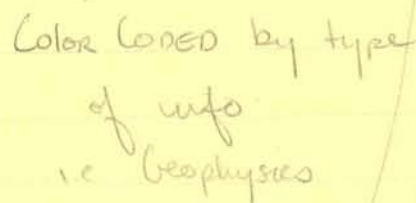 Color CODED by type
of info
i.e Geophysics